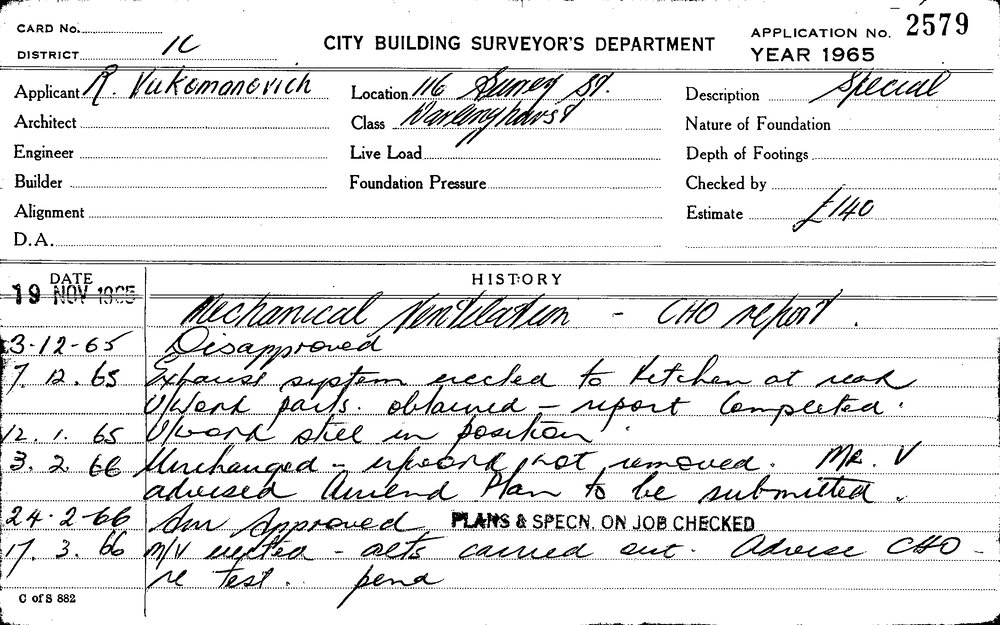 CARD No.
APPLICATION No. 2579
DISTRICT 1C
CITY BUILDING SURVEYOR'S DEPARTMENT
YEAR 1965
Applicant R. Vukomanovich
Location 116 Surrey St.
Description Special
Architect
Class Darlinghurst
Nature of Foundation
Engineer
Live Load
Depth of Footings
Builder
Foundation Pressure
Checked by
Alignment
Estimate £140
D.A.
DATE
HISTORY
19 NOV 1965
Mechanical Ventilation - CHO report.
3-12-65 Disapproved
7. 12. 65 Exhaust system erected to kitchen at rear
U/Work parts. obtained - report Completed.
12. 1. 65 U/work still in position
3. 2. 66 Unchanged - not removed. MR. V
advised Amend Plan to be submitted.
24-2-66 Approved PLANS & SPECN. ON JOB CHECKED
17. 3. 66 M/V erected - carried out. Advise CHO -
re test. pend
C of S 882